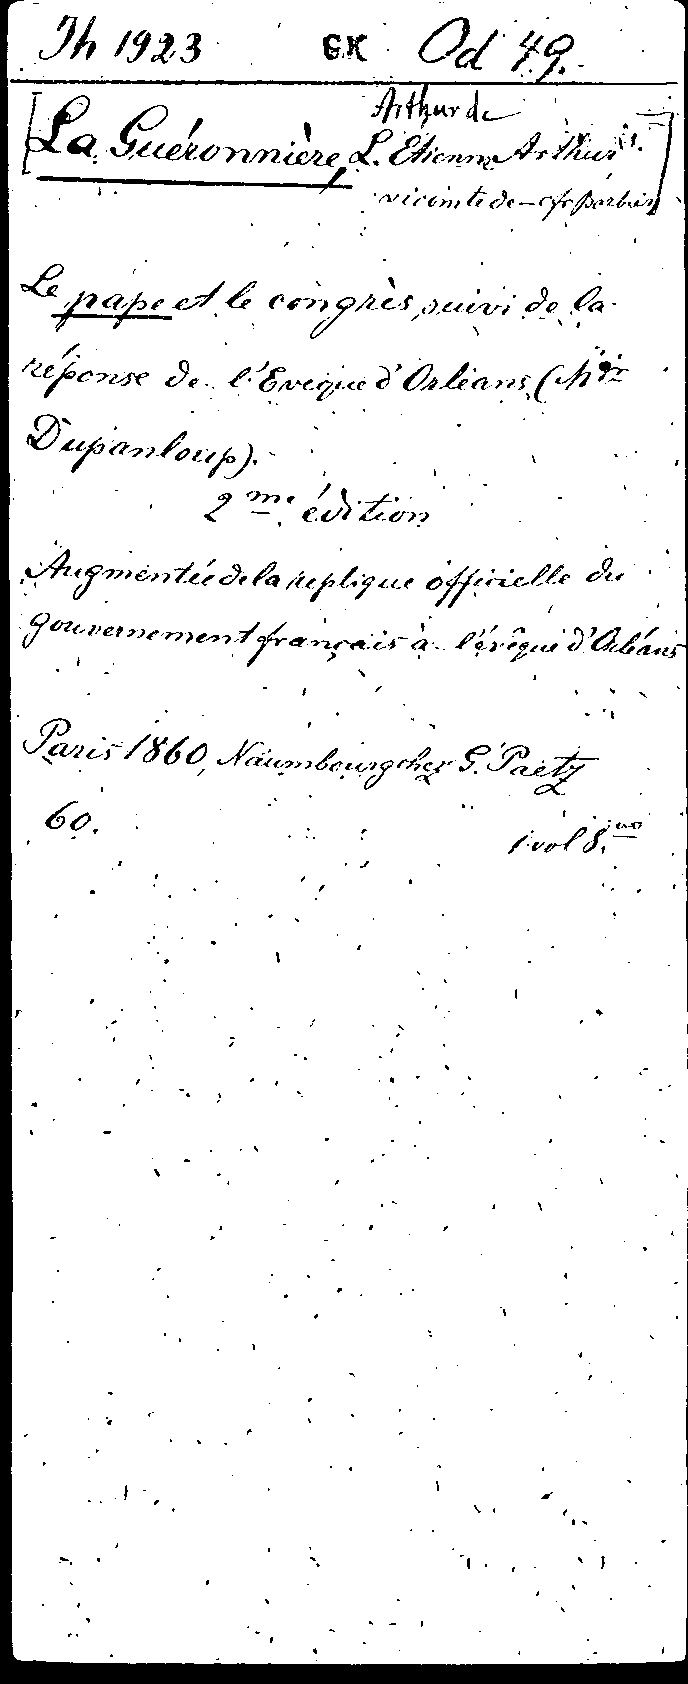 Th 1923 GK Od 49.
Arthur de
[La Guéronnière, L. Etienne Arthur
vicomte de - cfr Barbier]
Le pape et le congrès, suivi de la
réponse de l'Evêque d'Orléans (Mgr
Dupanloup).
2me édition
Augmentée de la replique officielle du
gouvernement français à l'évêque d'Orléans
Paris 1860, Naumbourg chez G. Paetz
60.
1 vol 8.vo